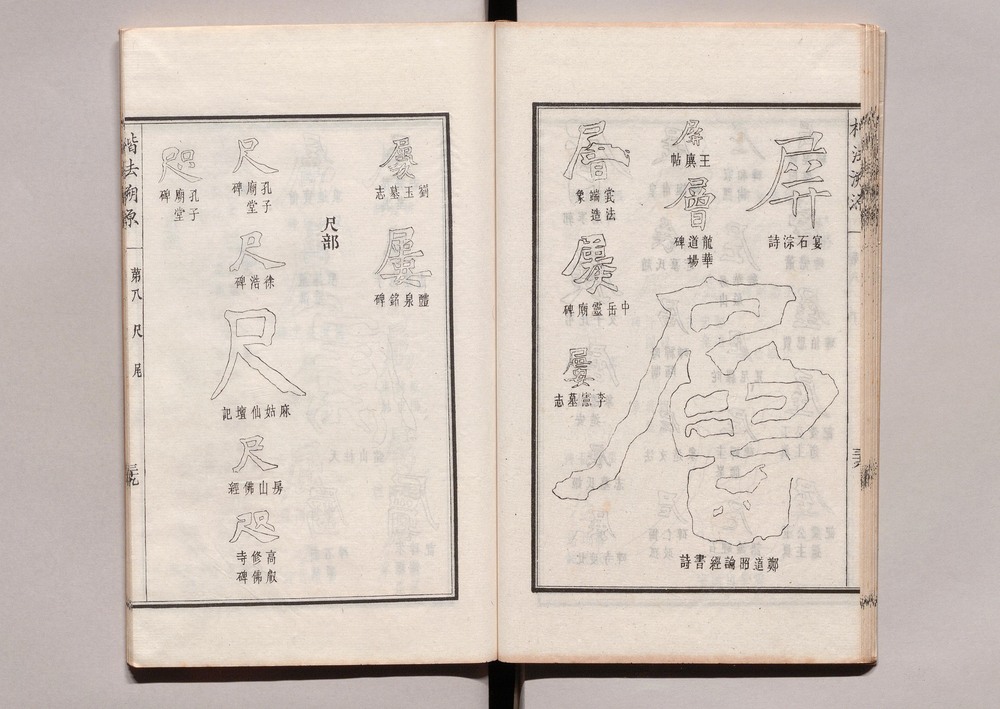 屏
宴石淙詩
屏
王廙帖
層
龍華
道場
碑
層
鄭道昭論經書詩
層
裳法
端造
象
屢
中岳靈廟碑
屢
李憲墓志
屢
劉玉墓志
屢
醴泉銘碑
尺部
尺
孔子
廟堂
碑
尺
徐浩碑
尺
麻姑仙壇記
尺
房山佛經
咫
高叡
修佛
寺碑
咫
孔子
廟堂
碑
楷法溯源
第八 尺 尾